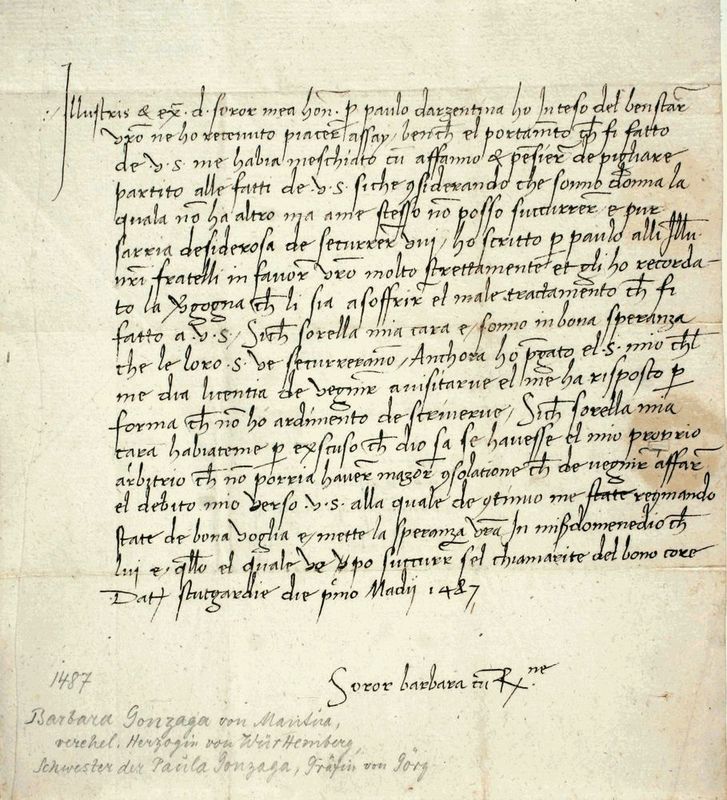 Illustris & ex. d. soror mea hon. p paulo darzentina ho Inteso del benstar
vro ne ho recevuto piacer assay / bench el portamto ch fi fatto
de .v.s. me habia meschiato cu affanno & pensier de pigliare
partito alle fatti de .v.s. siche 9siderando che sonno donna la
quala no ha altro ma ame stesso no posso succurrer e pur
sarria desiderosa de securrer vui / ho scritto p paulo alli Illu.
nri fratelli in favor vro molto strettamente et gli ho recorda-
to la vgogna ch li sia asoffrir el male tractamento ch fi
fatto a .v.s. / Sich sorella mia cara e / sonno in bona speranza
che le loro .s. ve secureranno / Anchora ho pgato el .s. mio chl
me dia licentia de vegnir avisitarve el me ha risposto p
forma ch no ho ardimento de scriverve / Sich sorella mia
cara habiateme p exscuso ch dio sa se havesse el mio proprio
arbitrio ch no porria haver mazor 9solatione ch de vegnir affar
el debito mio verso .v.s. alla quale de 9tinuo me
state de bona voglia e / mette la speranza vra In domenedio ch
lui e / qllo el quale ve po succurr sel chiamarite del bono core
Dat stutgardie die pmo Madii 1487
Soror barbara cu
1487
Barbara Gonzaga von Mantua,
verehel. Herzogin von Württemberg,
Schwester der Paula Gonzaga, Gräfin von Görz